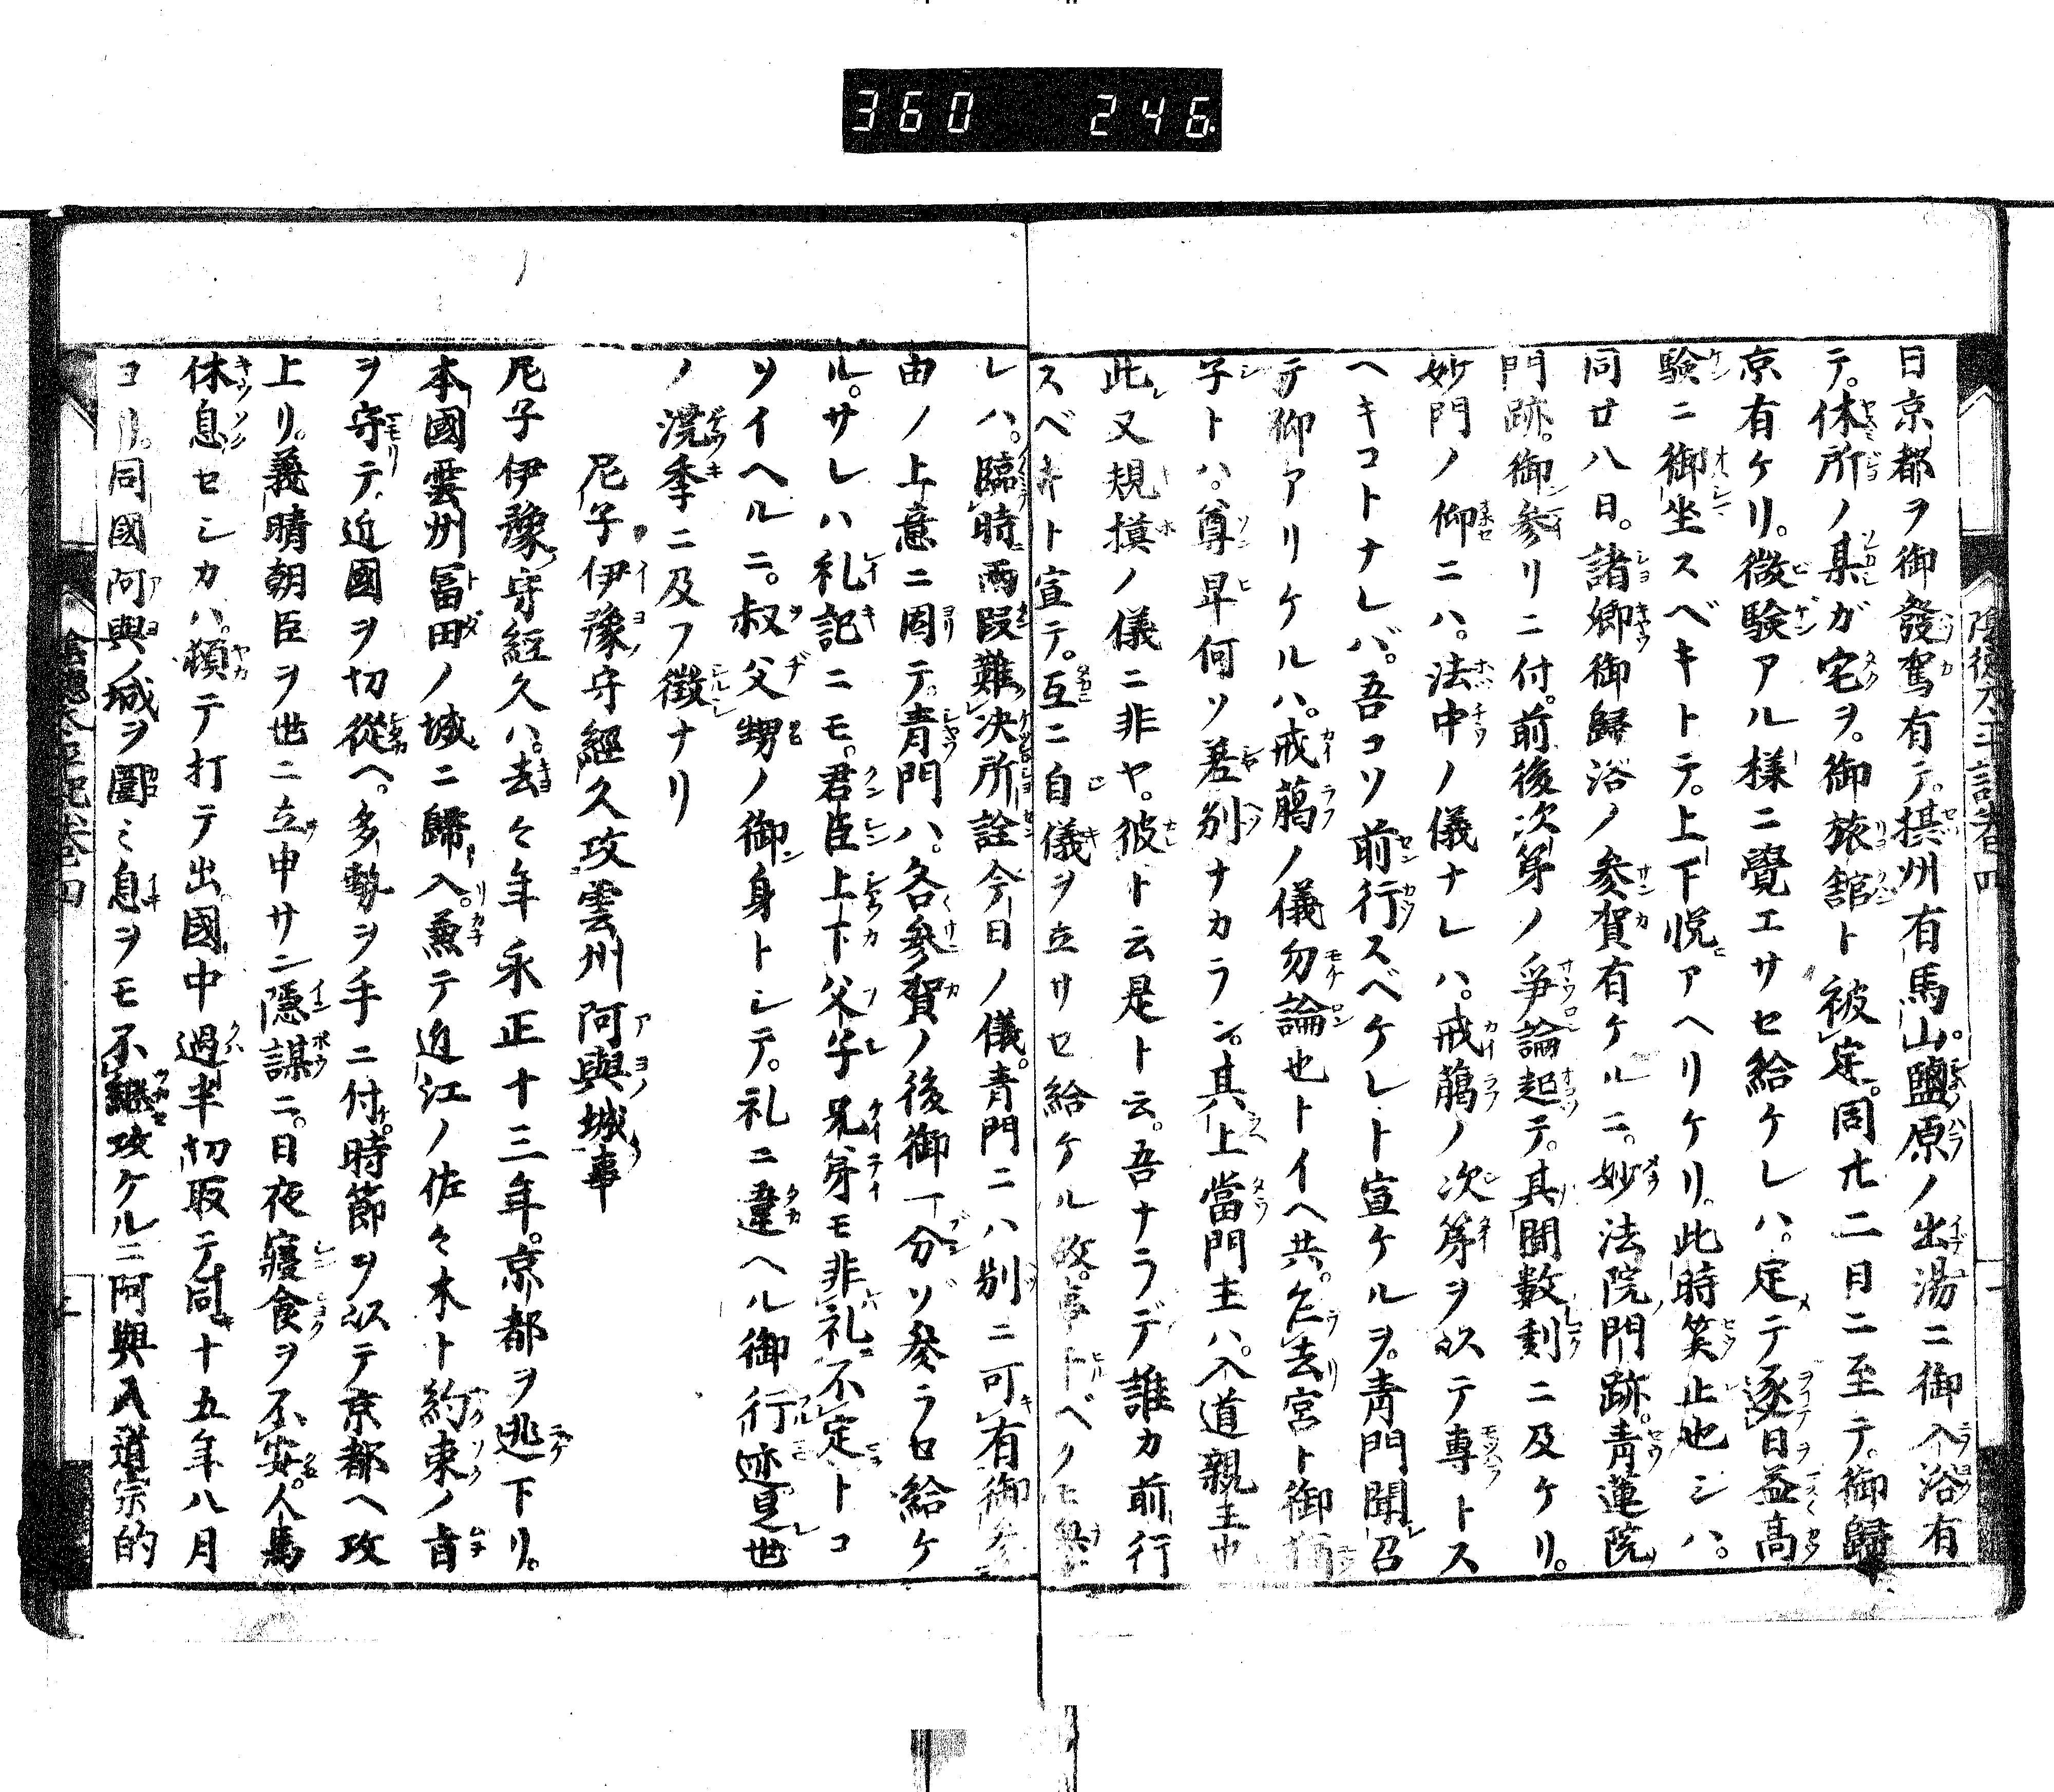 360 246
陰徳太平記卷四
日京都ヲ御發駕有テ。摂州有馬山。鹽原ノ出湯ニ御入浴有
テ。休所ノ某ガ宅ヲ。御旅舘ト被定。同廿二日ニ至テ。御歸
京有ケリ。徴驗アル様ニ覺エサセ給ケレハ。定テ逐日益高
驗ニ御坐スベキトテ。上下悦アヘリケリ。此時笑止也シハ。
同廿八日。諸卿御歸浴ノ參賀有ケルニ。妙法院門跡。青蓮院
門跡。御參リニ付。前後次第ノ爭論起テ。其間數刻ニ及ケリ。
妙門ノ仰ニハ。法中ノ儀ナレハ。戒﨟ノ次第ヲ以テ専トス
ヘキコトナレバ。吾コソ前行スベケレト宣ケルヲ。青門聞召
テ仰アリケルハ。戒﨟ノ儀勿論也トイヘ共。乍去宮ト御
子トハ。尊卑何ソ差別ナカラン。其上當門主ハ。入道親王也
此又規摸ノ儀ニ非ヤ。彼ト云是ト云。吾ナラデ誰カ前行
スベキト宣テ。互ニ自儀ヲ立サセ給ケル故。事
レハ。臨時両段難決所詮今日ノ儀。青門ニハ別ニ可有御參
由ノ上意ニ因テ。青門ハ。各參賀ノ後御一分ゾ參ラセ給ケ
ル。サレハ礼記ニモ。君臣上下父子兄弟モ非礼不定トコ
ソイヘルニ。叔父甥ノ御身トシテ。礼ニ違ヘル御行迹是世
ノ澆季ニ及フ徴ナリ
尼子伊豫守經久攻雲州阿與城事
尼子伊豫守經久ハ。去々年永正十三年。京都ヲ逃下リ。
本國雲州冨田ノ城ニ歸入。兼テ近江ノ佐々木ト約束ノ旨
ヲ守テ。近國ヲ切從ヘ。多勢ヲ手ニ付。時節ヲ以テ京都ヘ攻
上リ。義晴朝臣ヲ世ニ立申サン隱謀ニ。日夜寢食ヲ不安。人馬
休息セシカハ。頓テ打テ出國中過半切取テ同十五年八月
コリ。同國阿與ノ城ヲ圍ミ息ヲモ不繼攻ケルニ阿與入道宗的